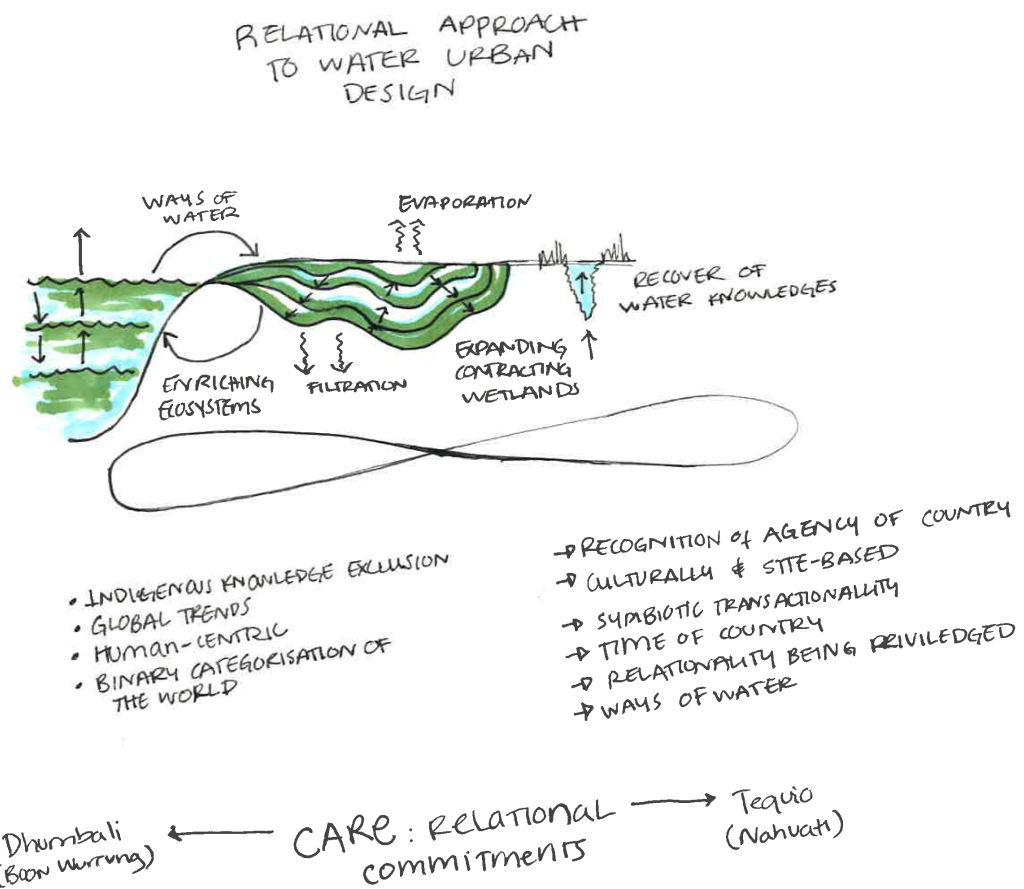 RELATIONAL APPROACH
TO WATER URBAN
DESIGN
WAYS OF
WATER
EVAPORATION
RECOVER OF
WATER KNOWLEDGES
EXPANDING
CONTRACTING
WETLANDS
ENRICHING
ECOSYSTEMS
FILTRATION
• INDIGENOUS KNOWLEDGE EXCLUSION
• GLOBAL TRENDS
• HUMAN-CENTRIC
• BINARY CATEGORISATION OF
THE WORLD
→ RECOGNITION of AGENCY OF COUNTRY
→ CULTURALLY & SITE-BASED
→ SYMBIOTIC TRANSACTIONALITY
→ TIME OF COUNTRY
→ RELATIONALITY BEING PRIVILEDGED
→ WAYS OF WATER
Dhumbali
(Boon Wurrung)
CARE: RELATIONAL
COMMITMENTS
Tequio
(Nahuatl)